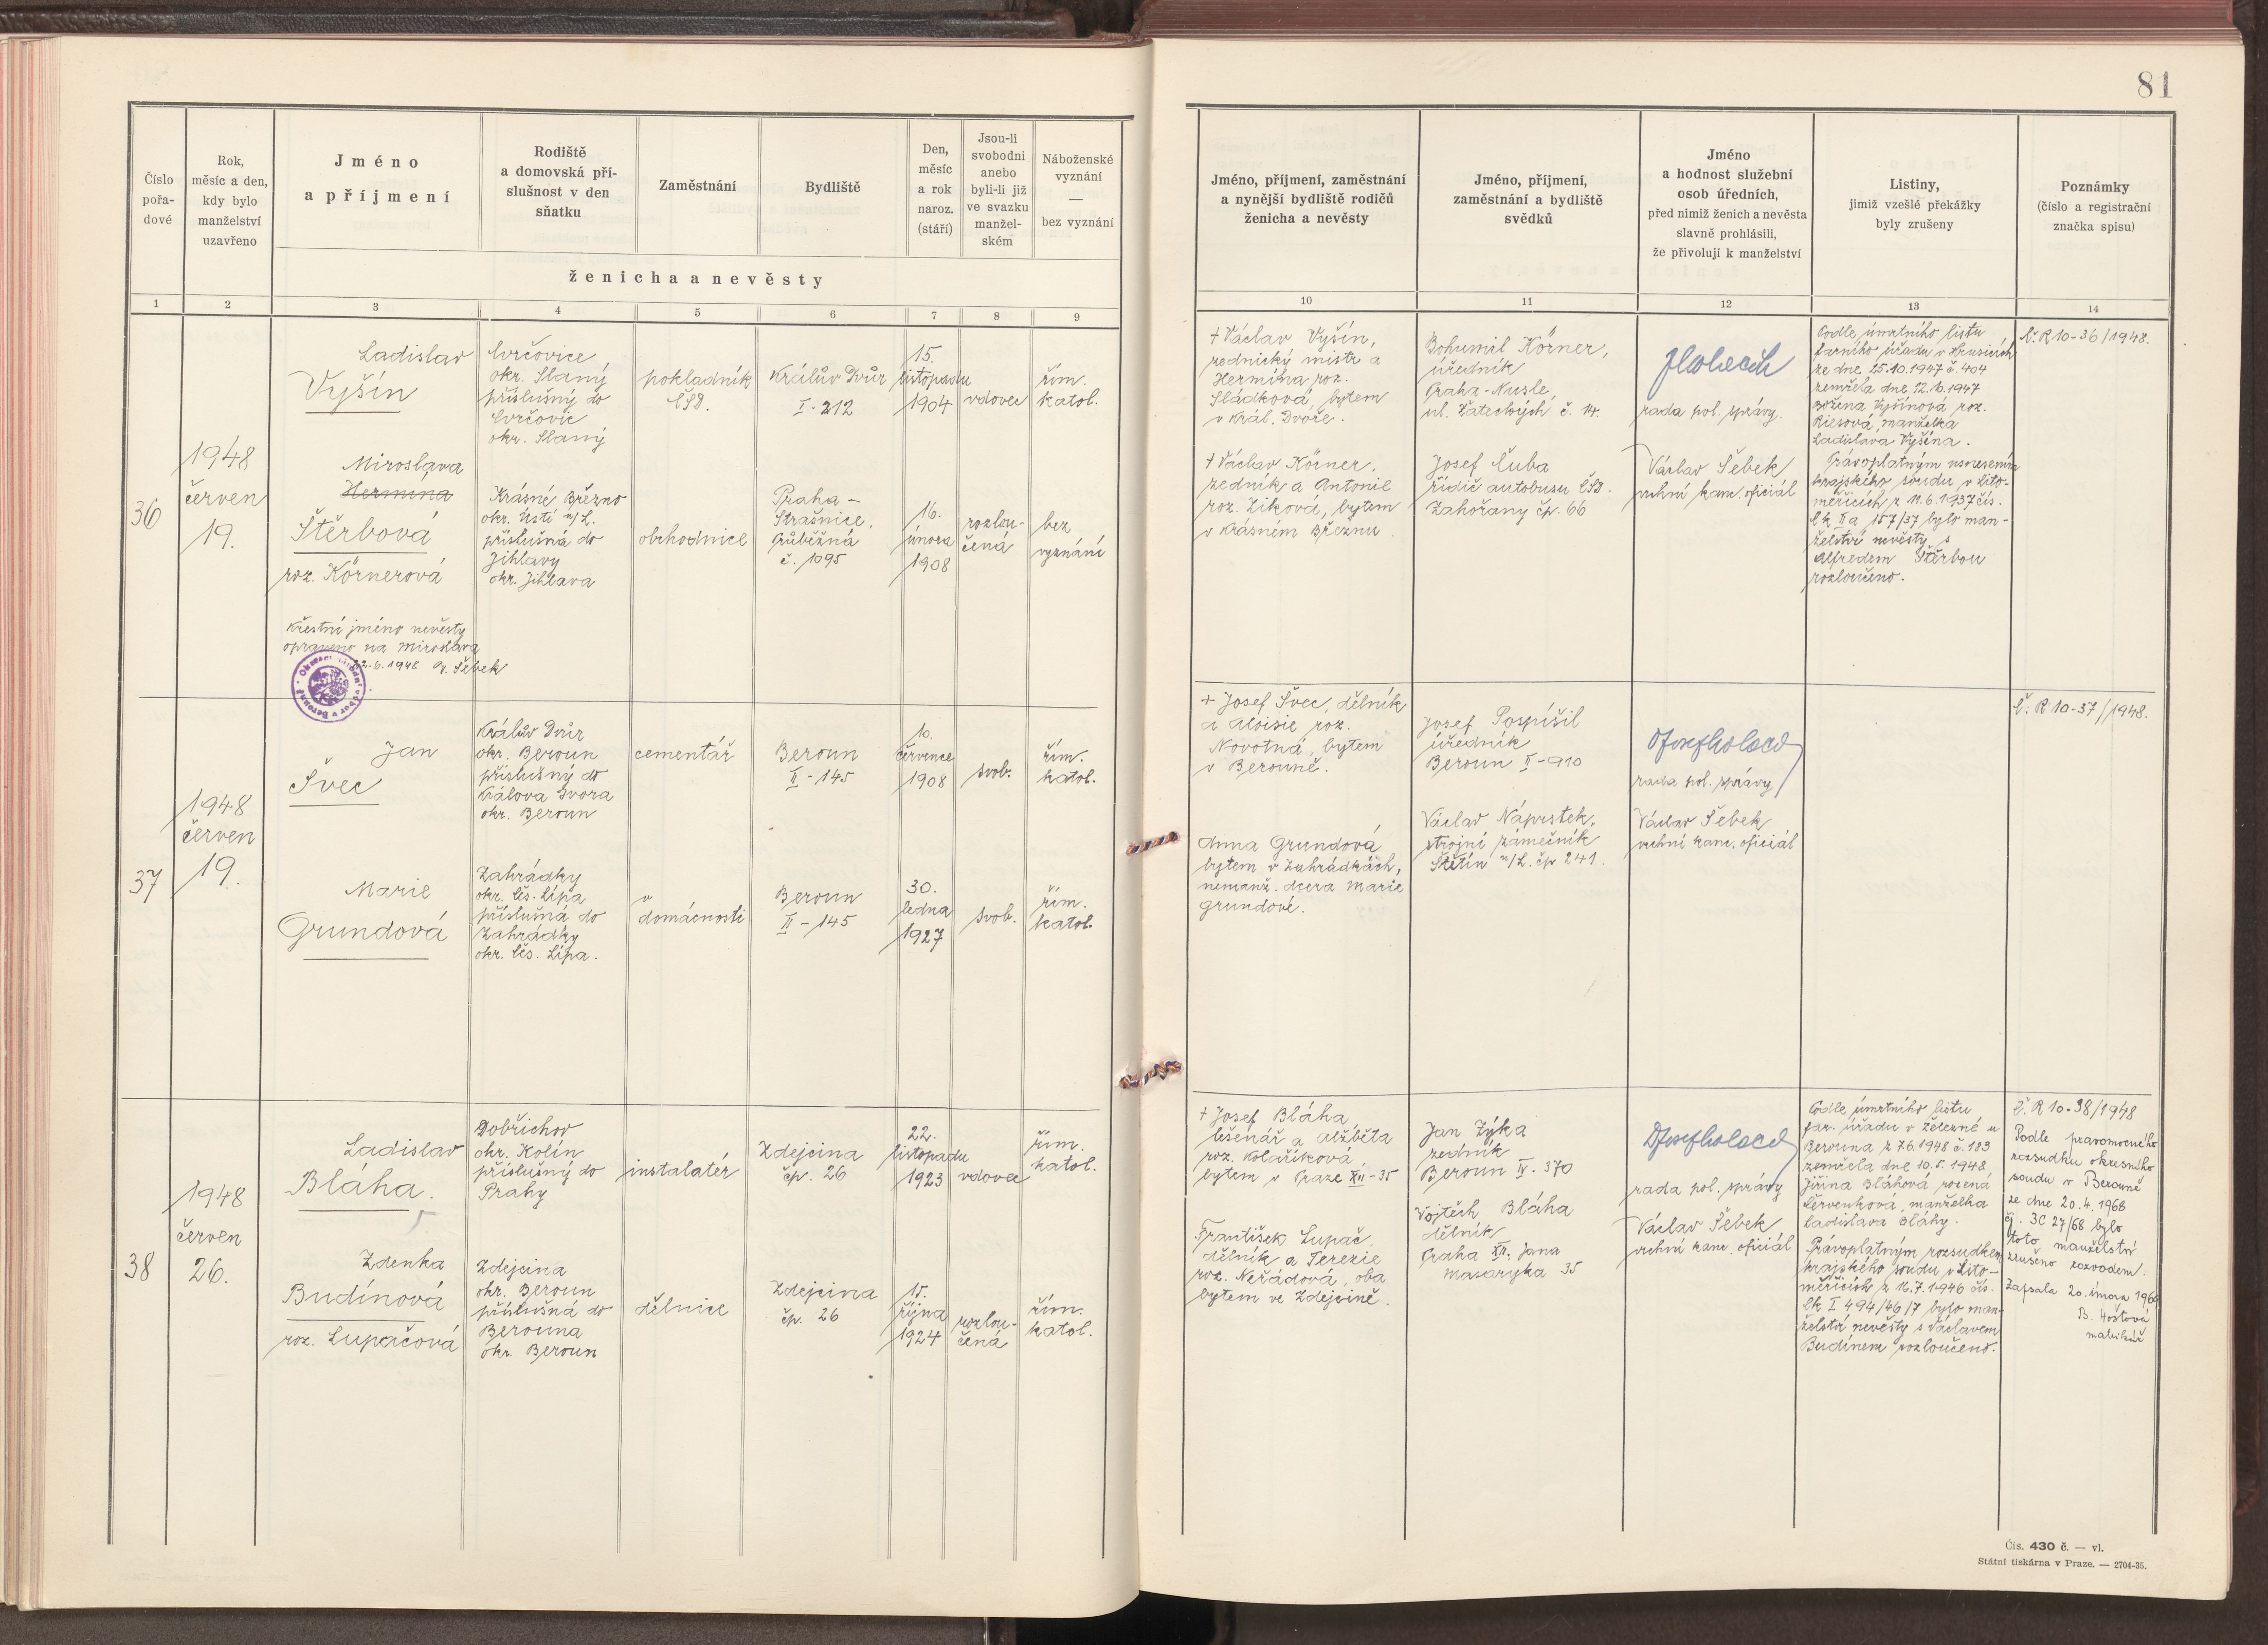 81
Číslo
pořa-
dové
Rok,
měsíc a den,
kdy bylo
manželství
uzavřeno
Jméno
a příjmení
Rodiště
a domovská pří-
slušnost v den
sňatku
Zaměstnání
Bydliště
Den,
měsíc
a rok
naroz.
(stáří)
Jsou-li
svobodni
anebo
byli-li již
ve svazku
manžel-
ském
Náboženské
vyznání
—
bez vyznání
ženicha a nevěsty
Jméno, příjmení, zaměstnání
a nynější bydliště rodičů
ženicha a nevěsty
Jméno, příjmení,
zaměstnání a bydliště
svědků
Jméno
a hodnost služební
osob úředních,
před nimiž ženich a nevěsta
slavně prohlásili,
že přivolují k manželství
Listiny,
jimiž vzešlé překážky
byly zrušeny
Poznámky
(číslo a registrační
značka spisu)
1 2 3 4 5 6 7 8 9 10 11 12 13 14
36
1948
červen
19.
Ladislav
Vyšín
okr. Slaný
příslušný do
okr. Slaný
pokladník
ČSD.
Králův Dvůr
I-212
15.
listopadu
1904
vdovec
řím.
katol.
Miroslava
Hermina
Štěrbová
roz. Körnerová
Krásné Březno
okr. Ústí n/L.
příslušná do
Jihlavy
okr. Jihlava
obchodnice
Praha -
Strašnice,
Průběžná
č. 1095
16.
února
1908
rozlou-
čená
bez
vyznání
Křestní jméno nevěsty
opraveno na Miroslava
22.6.1948 V. Šebek
Okresní národní výbor v Berouně
+ Václav Vyšín,
zednický mistr a
Hermína roz.
Sládková, bytem
v Král. Dvoře.
+ Václav Körner,
zedník a Antonie
roz. Ziková, bytem
v Krásném Březnu.
Bohumil Körner,
úředník
Praha-Nusle,
ul. Žateckých č. 14.
Josef Čuba
řidič autobusu ČSD.
Zahořany čp. 66
rada pol. správy.
Václav Šebek
vrchní kanc. oficiál
Podle úmrtního listu
farního úřadu v Hrusicích
ze dne 25.10.1947 č. 404
zemřela dne 12.10.1947
Božena Vyšínová roz.
Riesová, manželka
Ladislava Vyšína.
Právoplatným usnesením
krajského soudu v Lito-
měřicích z 11.6.1937 čís.
Ck II a 157/37 bylo man-
želství nevěsty s
Alfredem Štěrbou
rozloučeno.
Č: R 10-36/1948.
37
1948
červen
19.
Jan
Švec
Králův Dvůr
okr. Beroun
příslušný do
Králova Dvora
okr. Beroun
cementář
Beroun
II-145
10.
července
1908
svob.
řím.
katol.
Marie
Grundová
Zahrádky
okr. Čes. Lípa
příslušná do
Zahrádky
okr. Čes. Lípa.
v
domácnosti
Beroun
II-145
30.
ledna
1927
svob.
řím.
katol.
+ Josef Švec, dělník
a Aloisie roz.
Novotná, bytem
v Berouně.
Anna Grundová
bytem v Zahrádkách,
nemanž. dcera Marie
Grundové.
Josef Pospíšil
úředník
Beroun II-910
Václav Náprstek,
strojní zámečník
Štětín n/L. čp 241.
rada pol. správy
Václav Šebek
vrchní kanc. oficiál
Č: R 10-37/1948.
38
1948
červen
26.
Ladislav
Bláha.
Dobřichov
okr. Kolín
příslušný do
Prahy
instalatér
Zdejcina
čp. 26
22.
listopadu
1923
vdovec
řím.
katol.
Zdenka
Budínová
roz. Lupačová
Zdejcina
okr. Beroun
příslušná do
Berouna
okr. Beroun
dělnice
Zdejcina
čp. 26
15.
října
1924
rozlou-
čená
řím.
katol.
+ Josef Bláha,
lešenář a Alžběta
roz. Kolaříková
bytem v Praze XII-35
František Lupač,
dělník a Terezie
roz. Neřádová, oba
bytem ve Zdejcině.
Jan Zýka
zedník
Beroun IV-370
Vojtěch Bláha
dělník
Praha XII. Jana
Masaryka 35
rada pol. správy
Václav Šebek
vrchní kanc. oficiál
Podle úmrtního listu
far. úřadu v Železné u
Berouna z 7.6.1948 č. 183
zemřela dne 10.5.1948
Jiřina Bláhová rozená
Červenková, manželka
Ladislava Bláhy.
Právoplatným rozsudkem
krajského soudu v Lito-
měřicích z 16.7.1946 čís.
Ck I 494/46/7 bylo man-
želství nevěsty s Václavem
Budínem rozloučeno.
Č: R 10-38/1948
Podle pravomocného
rozsudku okresního
soudu v Berouně
ze dne 20.4.1968
čj. 3C 27/68 bylo
toto manželství
zrušeno rozvodem.
Zapsala 20. února 1969
matrikář
Čís. 430 č. — vl.
Státní tiskárna v Praze. — 2704-35.